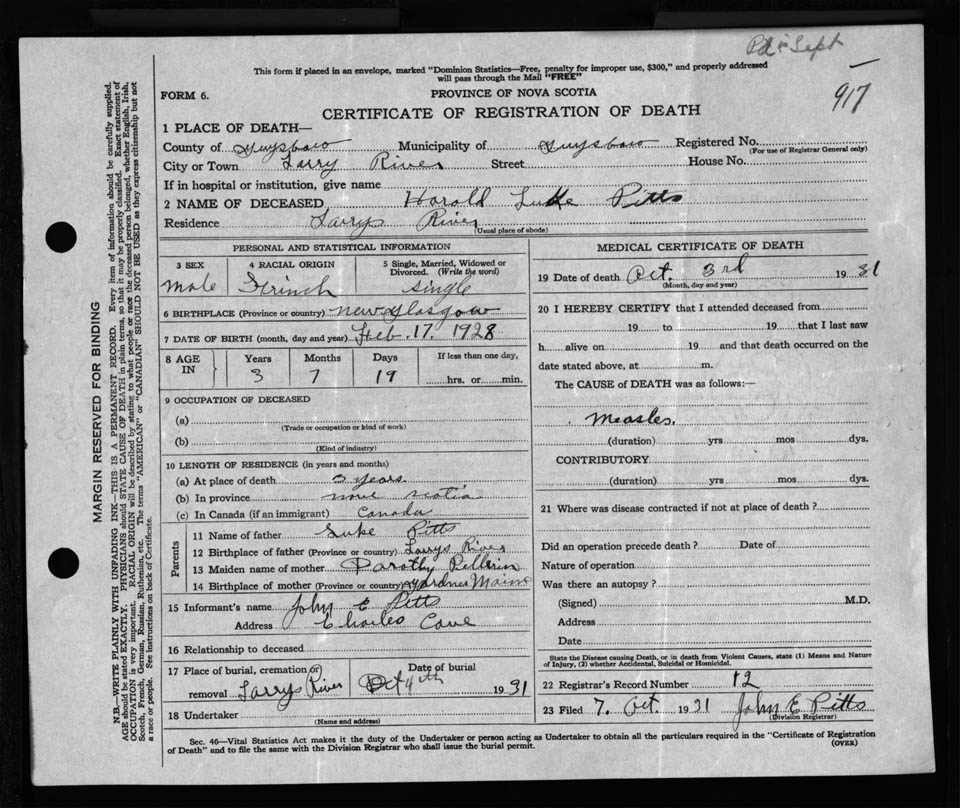 Pd in Sept
This form if placed in an envelope, marked "Dominion Statistics—Free, penalty for improper use, $300," and properly addressed
will pass through the Mail "FREE"
917
FORM 6.
PROVINCE OF NOVA SCOTIA
CERTIFICATE OF REGISTRATION OF DEATH
1 PLACE OF DEATH—
County of Guysboro Municipality of Guysboro Registered No.
(For use of Registrar General only)
City or Town Larry River Street House No.
If in hospital or institution, give name
2 NAME OF DECEASED Harold Luke Pitts
Residence Larrys River
(Usual place of abode)
PERSONAL AND STATISTICAL INFORMATION
3 SEX 4 RACIAL ORIGIN 5 Single, Married, Widowed or
Divorced. (Write the word)
Male Frinch Single
6 BIRTHPLACE (Province or country) New Glasgow
7 DATE OF BIRTH (month, day and year) Feb. 17. 1928
8 AGE IN Years Months Days If less than one day,
3 7 19 hrs. or min.
9 OCCUPATION OF DECEASED
(a)
(Trade or occupation or kind of work)
(b)
(Kind of industry)
10 LENGTH OF RESIDENCE (in years and months)
(a) At place of death 3 years.
(b) In province nove scotia
(c) In Canada (if an immigrant) Canada
Parents
11 Name of father Luke Pitts
12 Birthplace of father (Province or country) Larrys River
13 Maiden name of mother Dorothy Pellerin
14 Birthplace of mother (Province or country) Gardner Maine
15 Informant's name John E Pitts
Address Charles Cove
16 Relationship to deceased
17 Place of burial, cremation or Date of burial
removal Larrys River Oct 4th 1931
18 Undertaker
(Name and address)
MEDICAL CERTIFICATE OF DEATH
19 Date of death Oct. 3rd 1931
(Month, day and year)
20 I HEREBY CERTIFY that I attended deceased from
19 to 19 that I last saw
h alive on 19 and that death occurred on the
date stated above, at m.
The CAUSE of DEATH was as follows:—
Measles.
(duration) yrs mos dys.
CONTRIBUTORY
(duration) yrs mos dys.
21 Where was disease contracted if not at place of death?
Did an operation precede death? Date of
Nature of operation
Was there an autopsy?
(Signed) M.D.
Address
Date
State the Disease causing Death, or in death from Violent Causes, state (1) Means and Nature
of Injury, (2) whether Accidental, Suicidal or Homicidal.
22 Registrar's Record Number 12
23 Filed 7. Oct. 1931 John E Pitts
(Division Registrar)
Sec. 46—Vital Statistics Act makes it the duty of the Undertaker or person acting as Undertaker to obtain all the particulars required in the "Certificate of Registration
of Death" and to file the same with the Division Registrar who shall issue the burial permit.
(OVER)
MARGIN RESERVED FOR BINDING
N.B.—WRITE PLAINLY WITH UNFADING INK—THIS IS A PERMANENT RECORD. Every item of information should be carefully supplied.
AGE should be stated EXACTLY. PHYSICIANS should STATE CAUSE OF DEATH in plain terms, so that it may be properly classified. Exact statement of
OCCUPATION is very important. RACIAL ORIGIN will be described by stating to what people or race the deceased person belonged, whether English, Irish,
Scotch, French, German, Russian, Ruthenian, etc. The terms "AMERICAN" or "CANADIAN" SHOULD NOT BE USED as they express citizenship but not
a race or people. See instructions on back of Certificate.